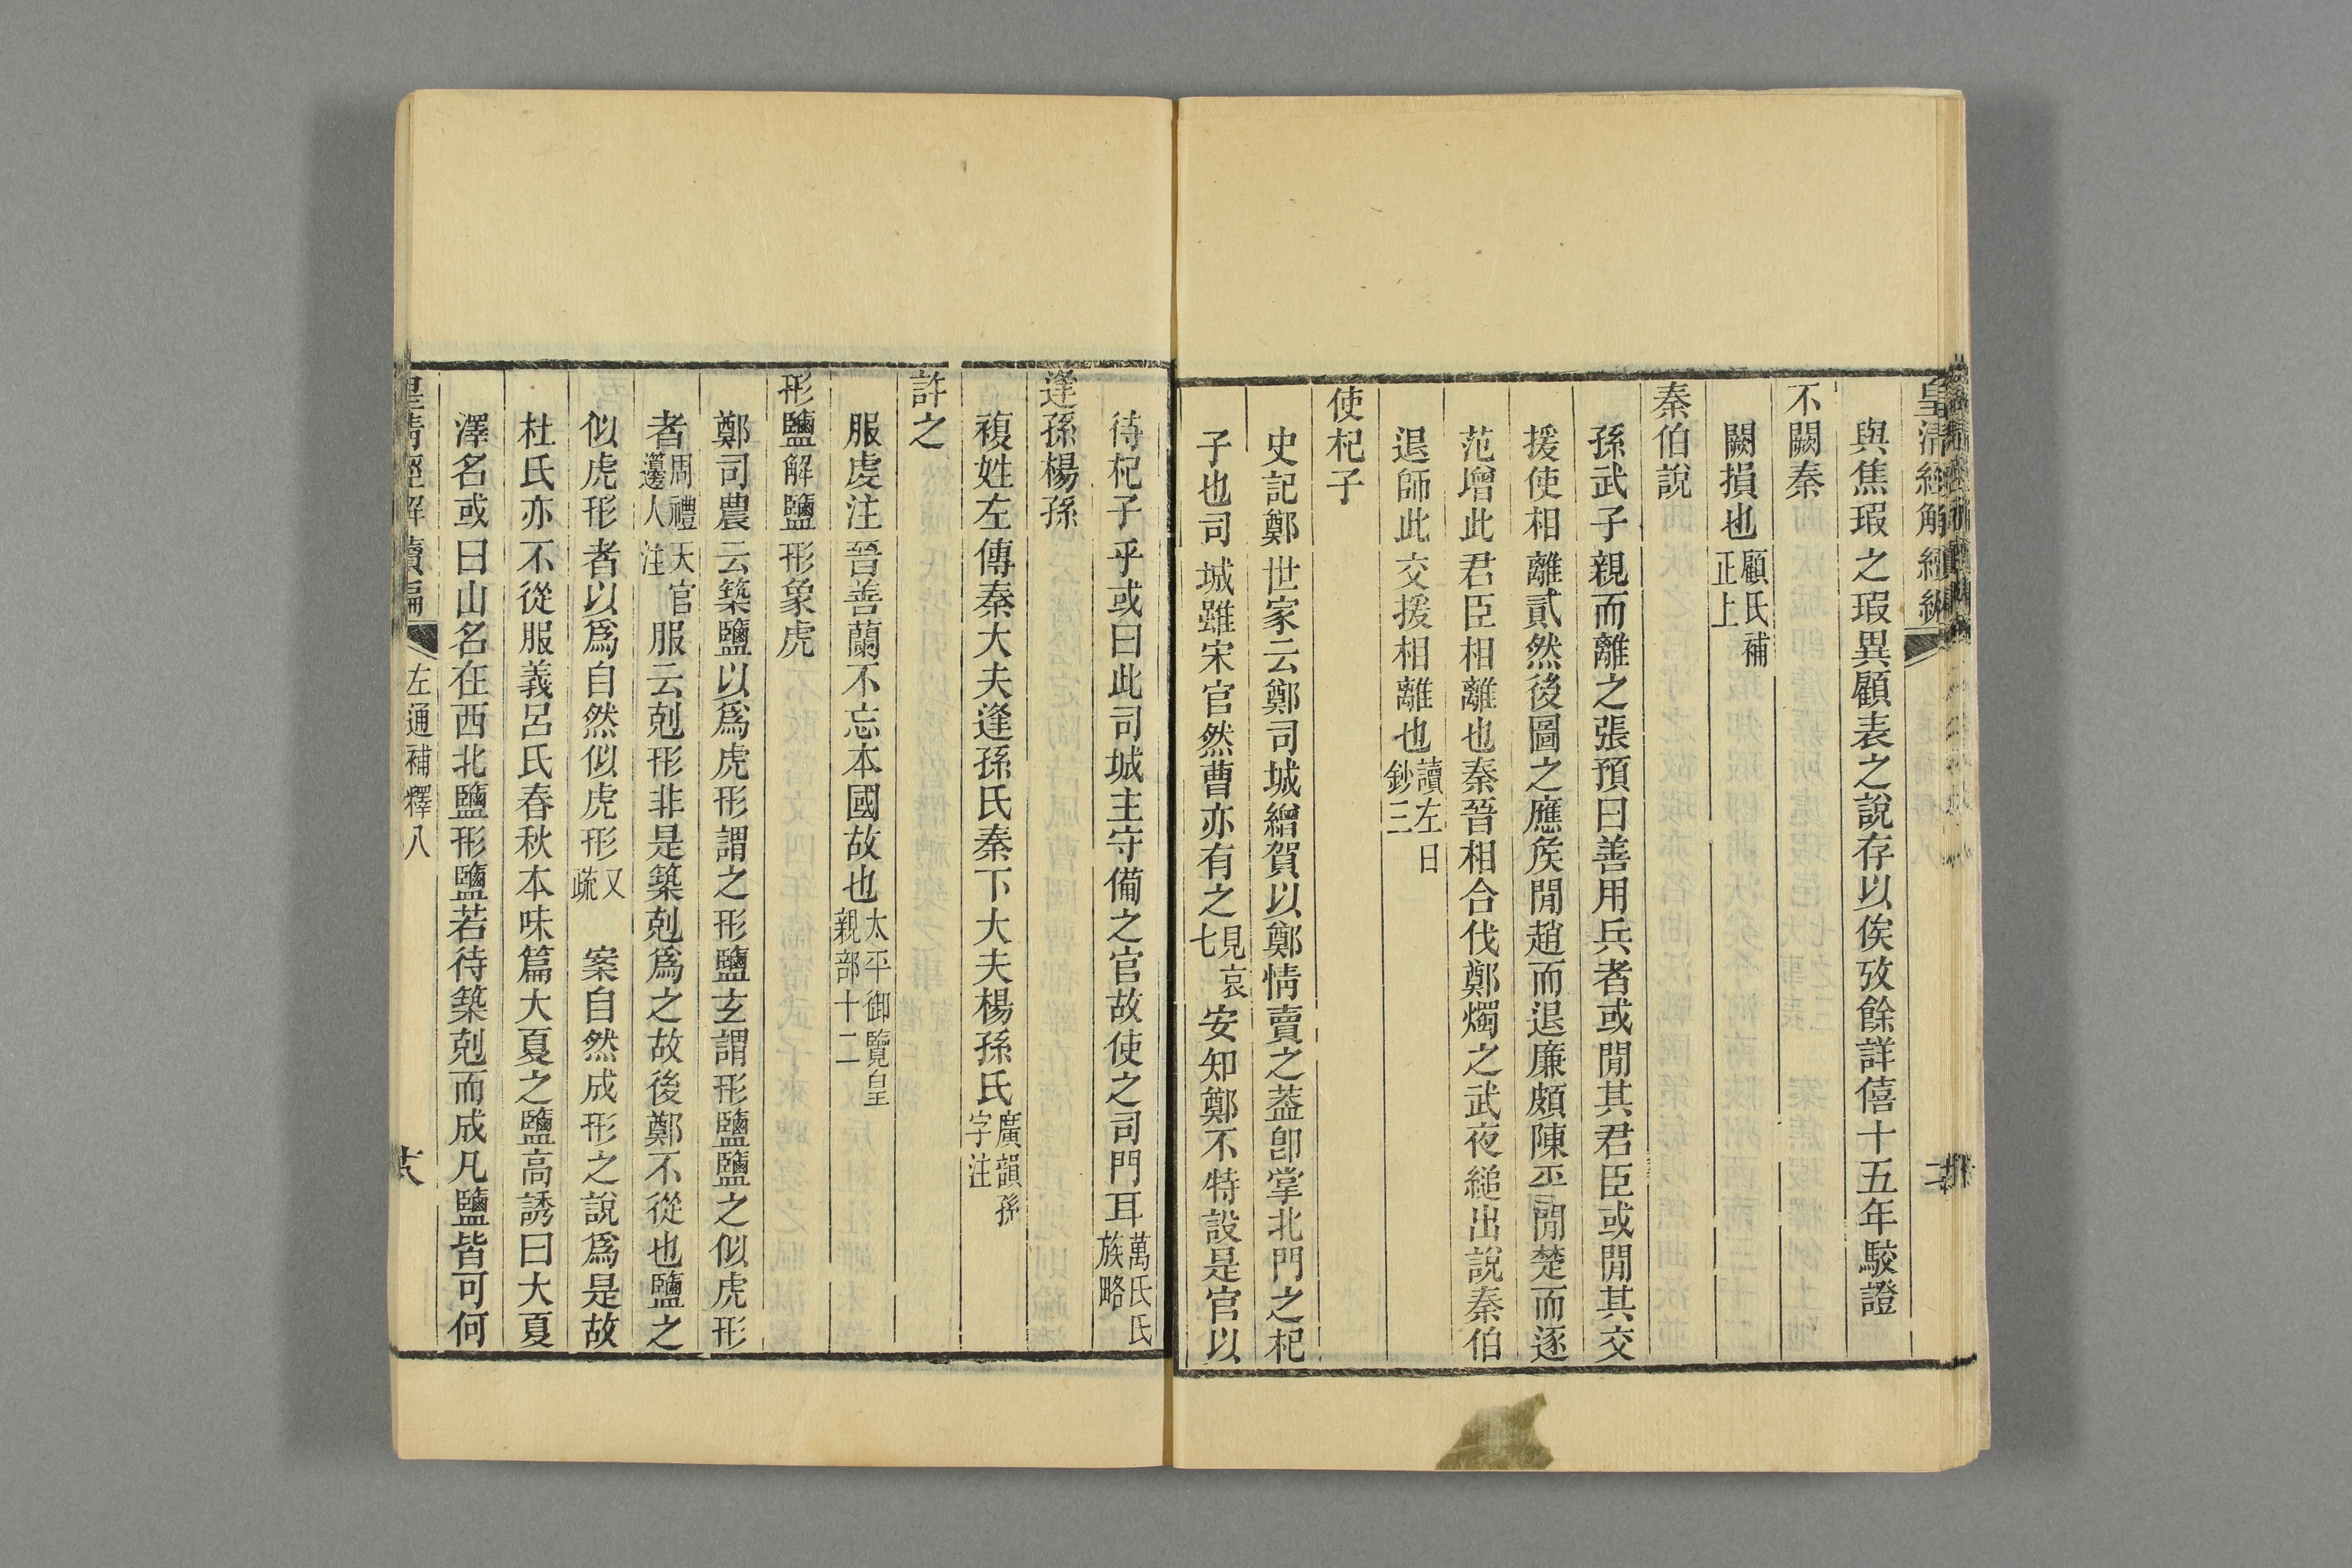 皇清經解續
與焦瑕之瑕異顧表之說存以俟攷餘詳僖十五年駮證
不闕秦
闕損也顧氏補正上
秦伯說
孫武子親而離之張預曰善用兵者或閒其君臣或閒其交
援使相離貳然後圖之應矦閒趙而退廉頗陳平閒楚而逐
范增此君臣相離也秦晉相合伐鄭燭之武夜縋出說秦伯
退師此交援相離也讀左日鈔三
使杞子
史記鄭世家云鄭司城繒賀以鄭情賣之蓋卽掌北門之杞
子也司城雖宋官然曹亦有之見哀七安知鄭不特設是官以
待杞子乎或曰此司城主守備之官故使之司門耳萬氏氏族略
逢孫楊孫
複姓左傳秦大夫逢孫氏秦下大夫楊孫氏廣韻孫字注
許之
服虔注晉善蘭不忘本國故也太平御覽皇親部十二
形鹽解鹽形象虎
鄭司農云築鹽以爲虎形謂之形鹽玄謂形鹽鹽之似虎形
者周禮天官籩人注服云剋形非是築剋爲之故後鄭不從也鹽之
似虎形者以爲自然似虎形又疏 案自然成形之說爲是故
杜氏亦不從服義呂氏春秋本味篇大夏之鹽高誘曰大夏
澤名或曰山名在西北鹽形鹽若待築剋而成凡鹽皆可何
皇清經解續編 左通補釋八